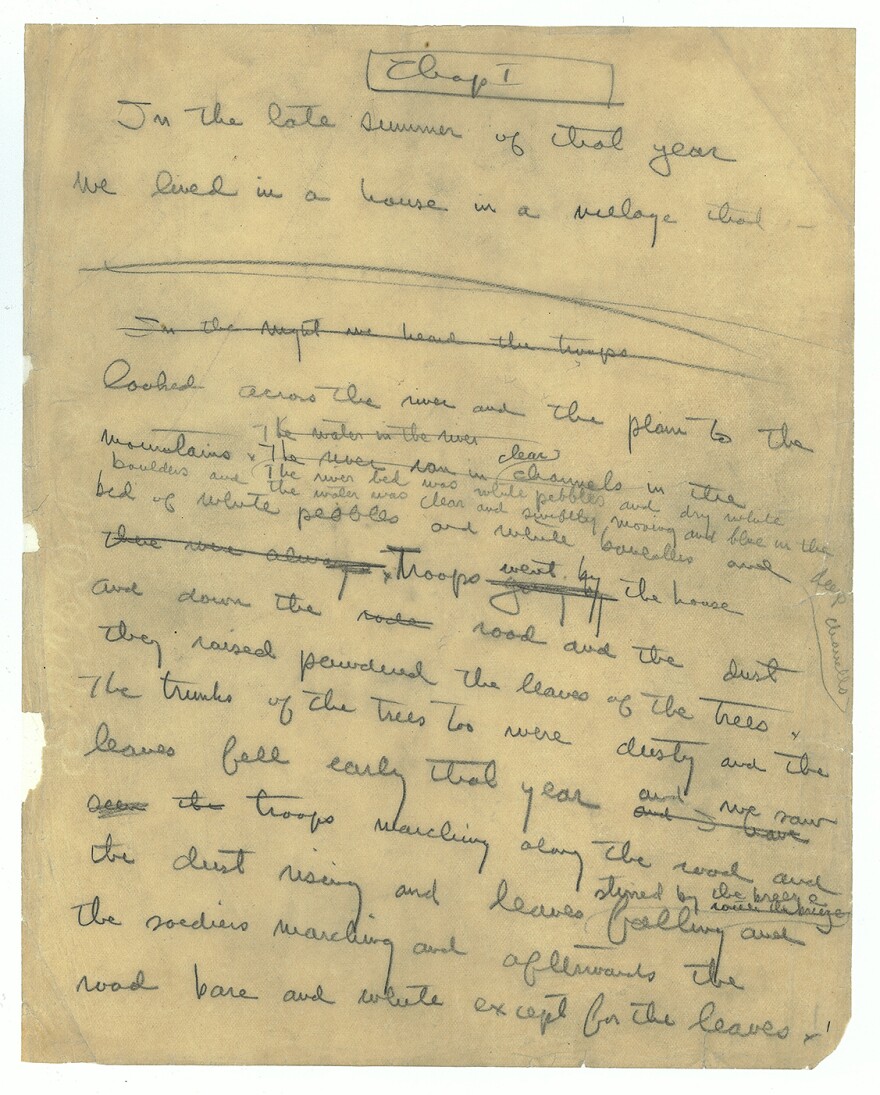 Chap I
In the late summer of that year
we lived in a house in a village that –
In the night we heard the troops
looked across the river and the plain to the
The water in the river
mountains x The river ran in clear channels in the
The river bed was white pebbles and dry white
boulders and the water was clear and swiftly moving and blue in the
deep channels
bed of white pebbles and white boulders and
there were always x Troops going by went by the house
and down the rode road and the dust
they raised powdered the leaves of the trees x
The trunks of the trees too were dusty and the
leaves fell early that year and we saw
and I have
seen the troops marching along the road and
stirred by the breeze
the dust rising and leaves falling and
the soldiers marching and afterwards the
road bare and white except for the leaves x